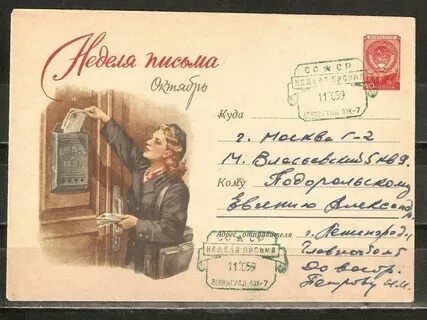 Неделя письма
Октябрь
ПОЧТА СССР
40
СССР
НЕДЕЛЯ ПИСЬМА
11 10 59
ЛЕНИНГРАД ПЖ-7
Куда
г. Москва Г-2
М. Власьевский 5 кв 9.
Кому Подорольскому
Евгению
Адрес отправителя г. Ленинград
Главпочтамт
До востр.
Петрову И. И.
СССР
НЕДЕЛЯ ПИСЬМА
11 10 59
ЛЕНИНГРАД ПЖ-7